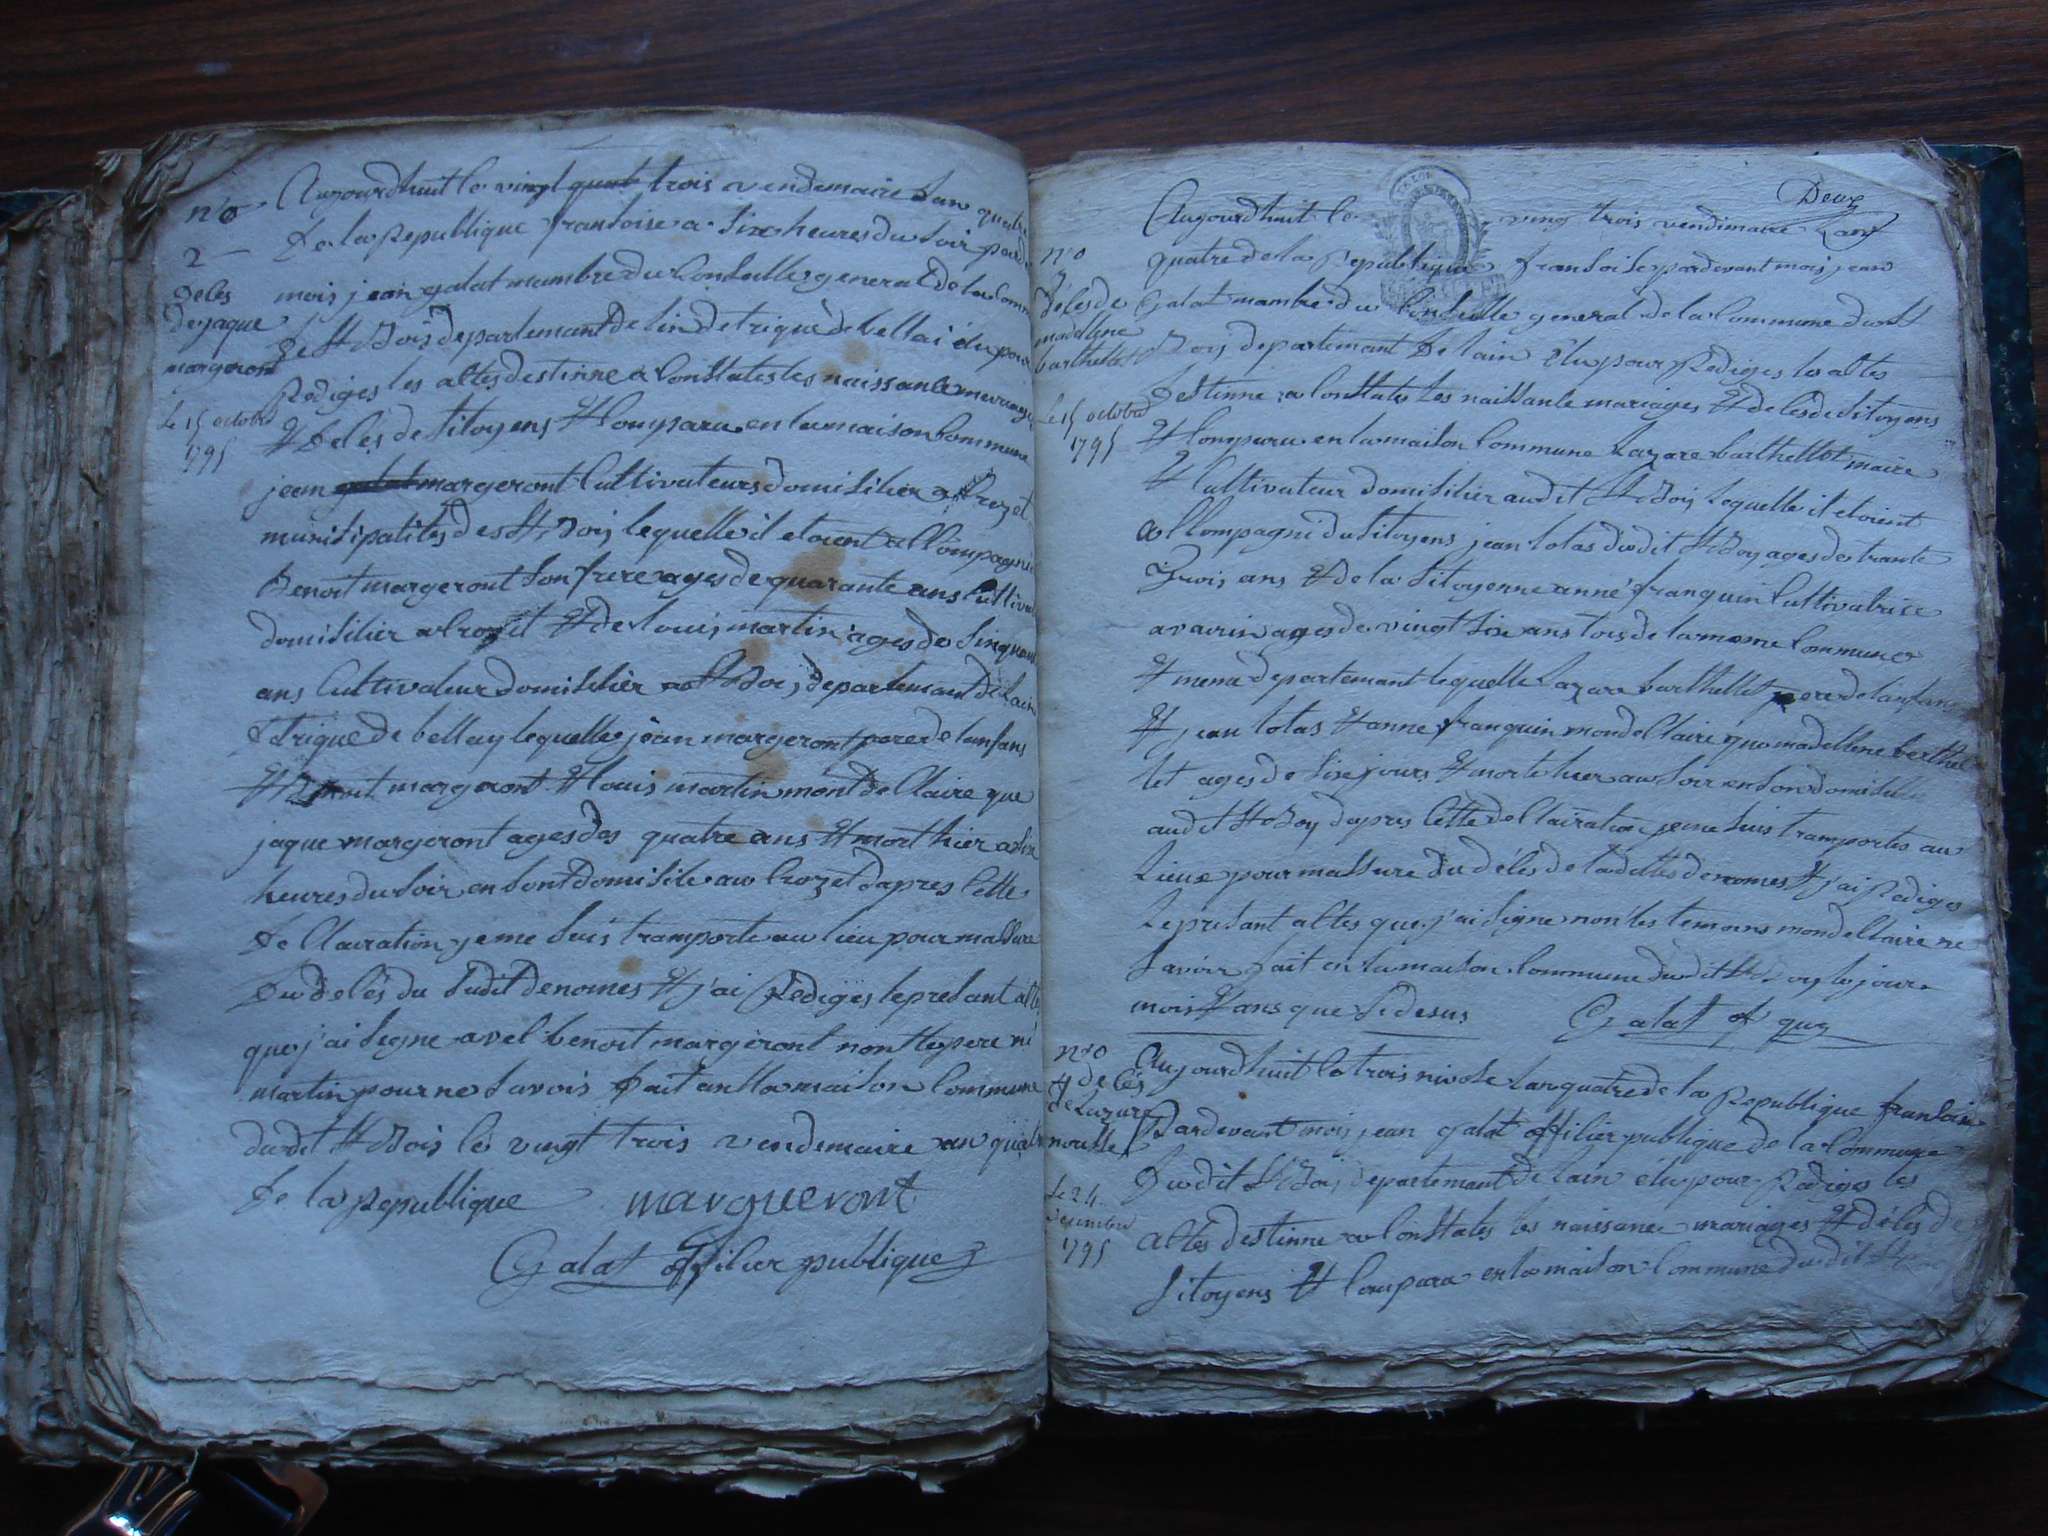 n°
2
déles
de jaque
margeront
le 15 octobre
1795
Aujourdhuit le vingt trois vendemaire lan quatre
de la Republique fransoise a six heures du soir par de
mois jean galat mambre du Conseille general de la Com
de St Bois departemant de lin detrique de bellai élu pour
Rediges les altes destinne a Constates les naissanse meriages
& déles de sitoyens & Compara en la maison Commune
jean margeront Cultivateurs domisilier a Crozet
munisipalites de St Bois lequelle il etoient allompagnie
Benoit margeront son frere ages de quarante ans Cultiva
domisilier a Crozet & de Louis martin ages de sinquant
ans Cultivateur domisilier a St Bois departemant de lain
detrique de bellay lequelle jean margeront pere de lanfans
& Benoit margeront & louis martin mont dellaire que
jaque margeront ages des quatre ans & mort hier a six
heures du soir en sont domisile au Crozet dapres Cette
dellairation jeme suis tramporte au lieu pour massure
du déles du sudit denomes & j'ai Rediges le presant alte
que j'ai signe avec benoit margeront non le pere ni
martin pour ne savois fait an la maison Commune
dudit St Bois le vingt trois vendemaire an quatre
de la Republique margueront
Galat offilier publique
Deux
n°
déles de
madeline
barthellet
le 15 octobre
1795
Aujourdhuit le ving trois vendimaire lans
quatre de la Republique fransoise pardevant mois jean
Galat mambre du Conseille general de la Commune du St
Bois departemant de lain élu pour Rediges les altes
destinne a Constates les naissanse mariages & déles de sitoyens
& Compara en la maison Commune Lazare barthellet maire
& Cultivateur domisilier audit St Bois lequelle il etoient
allompagni du sitoyens jean lolas dudit St Bois ages de trante
trois ans & de la sitoyenne anne franquin Cultivatrise
a vavrin ages de vingt six ans tous de la meme Commune
& meme departemant lequelle Lazare barthellet pere de lanfan
& jean lolas & anne franquin mon dellaire que madellene barthel
let ages de six jours & morte hier au soir en son domisile
audit St Bois dapres Cette dellairation jeme suis tramportes au
Lieux pour massure du déles de ladittes denomes & j'ai Rediges
le presant altes que j'ai signe non les temons mon dellaire ne
savoir fait en la maison Commune dudit St Bois le jour
mois & ans que si desus Galat of que
n°
4 déles
de Lazare
nouelle
le 24
decembre
1795
Aujourdhuit le trois nivose lan quatre de la Republique fransoise
Pardevant mois jean galat offilier publique de la Commune
dudit St Bois departemant de lain élu pour Rediges les
altes destinne a Constates les naissance mariages & déles de
sitoyens & Compara en la maison Commune dudit St